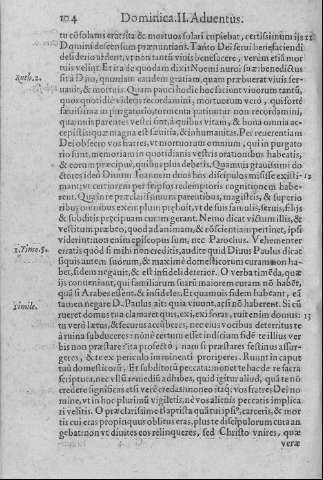 104 Dominica.II.Aduentus.
tu cōsolamis erotsta & mortuos sulari cupiebat, certissimum ijs 11
Domini descensum prænuntians. Tanto Dei serui benefaciendi
desiderio ardent, vt non tantū viuis benefacere, verùm etiā mor
tuis velint. Et ita de quodam dixit Noemi nurui suæ: benedictus
Ruth.2. sit à Dño, quoniam eandem gratiam, quam præbuerat viuis ser-
uauit, & mortuis. Quam pauci hodie hoc faciunt viuorum tantū,
quos quotidiè videtis recordamini, mortuorum verò, qui fortè
sæuissima in purgatorio tormenta patiuntur non recordamini,
quamuis parentes vestri sint à quibus vitam, & bona omnia ac-
cepistis quæ magna est sæuitia, & inhumanitas. Per reuerentiam
Dei obsecro vos fratres, vt mortuorum omnium, qui in purgato
rio sunt, memoriam in quotidianis vestris orationibus habeatis,
& eorum præcipuè, quibus plus debetis. Quamuis grauissimi do
ctores ideò Diuum Ioannem duos hos discipulos misisse existi- 12
mant; vt certiorem per seipsos redemptoris cognitionem habe-
rent. Quare præclarissimum parentibus, magistris, & superio
ribus omnibus exemplum præbuit, vt de suis famulis, seruis, filijs
& subditis præcipuam curam gerant. Nemo dicat victum illis, &
vestitum præbeo, quod ad animam, & cōscientiam pertinet, ipsi
viderint: non enim episcopus sum, nec Parochus. Vehementer
1.Timo.5. eratis quòd si mihi non creditis, audite quid Diuus Paulus dicat
si quis autem suorum, & maximè domesticorum curam non ha-
bet, fidem negauit, & est infideli deterior. O verba timēda, quæ
ijs conueniunt, qui familiarium suarū maiorem curam nō habēt,
quā si Arabes essent, & infideles. Et quamuis fidem habeant, eā
tamen negare D. Paulus ait: quia viuunt, ac si nō haberent. Si cū
Simile. rueret domus tua clamaret quis, exi, exi foras, ruit enim domus: 13
tu verò lætus, & securus accüberes, nec eius vocibus deterritus te
à ruina subduceres: nōnè certum esset indicium fidē te illius ver
bis non præstare? ita profectò, nam si præstares festinus assur-
geres, & te ex periculo imminenti properares. Ruunt in caput
tuū domesticorū, & subditorū peccata: monet te hac de re sacra
scriptura, nec vllū remediū adhibes, quid igitur aliud, quā te nō
credere significas etsi verè credas: moneo itaq; vos fratres Dei no-
mine, vt in hoc plurimū vigiletis, nè vos alienis peccatis implica
ri velitis. O præclarissime Baptista quā tui ipsi⁹, carceris, & mor
tis cui eras propinquus oblitus eras, plus te discipulorum cura an
gebat: non vt diuites eos relinqueres, sed Christo vnires, quæ
veræ